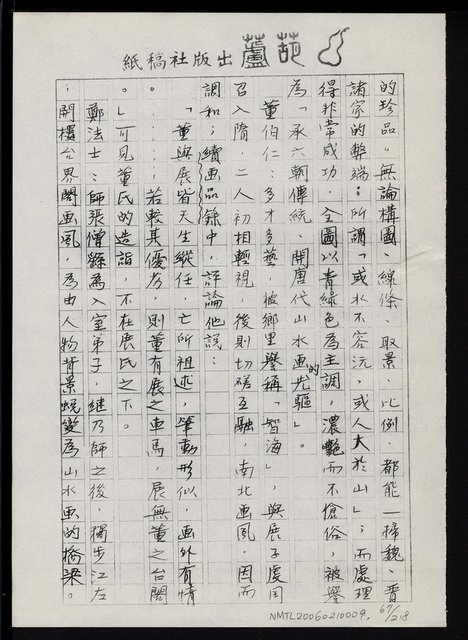 葫蘆出版社稿紙
的珍品。無論構圖、線條、取景、比例,都能一掃魏、晉
諸家的弊端:所謂「或水不容泛,或人大於山」;而處理
得非常成功。全圖以青綠色為主調,濃艷而不傖俗,被譽
為「承六朝傳統、開唐代山水畫的先驅」。
董伯仁:多才多藝,被鄉里譽稱「智海」,與展子虔同
召入隋,二人初相輕視,後則切磋互融,南北畫風,因而
調和;續画品錄中,評論他說:
「董與展皆天生縱任,亡所祖述,筆動形似,画外有情
。……若較其優劣,則董有展之車馬,展無董之台閣
。」可見董氏的造詣,不在展氏之下。
鄭法士:師張僧繇為入室弟子,繼乃師之後,獨步江左
;開樓台界閣画風,為由人物背景蛻變為山水画的橋梁。
NMTL20060210009 67/218